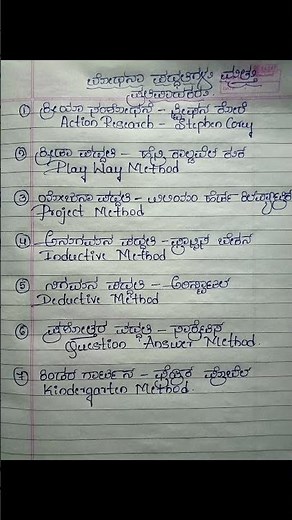 ಬೋಧನಾ ಪದ್ಧತಿಗಳು ಮತ್ತು
ಪ್ರತಿಪಾದಕರು.
① ಕ್ರಿಯಾ ಸಂಶೋಧನೆ - ಸ್ಟೀಫನ್ ಕೋರೆ
Action Research - Stephen Corey
② ಕ್ರೀಡಾ ಪದ್ಧತಿ -
Play Way Method
③ ಯೋಜನಾ ಪದ್ಧತಿ -
Project Method
④ ಅನುಗಮನ ಪದ್ಧತಿ - ಫ್ರಾನ್ಸಿಸ್ ಬೇಕನ್
Inductive Method
⑤ ನಿಗಮನ ಪದ್ಧತಿ - ಅರಿಸ್ಟಾಟಲ
Deductive Method
⑥ ಪ್ರಶ್ನೋತ್ತರ ಪದ್ಧತಿ - ಸಾಕ್ರೆಟಿಸ
Question Answer Method.
⑦ ಕಿಂಡರ ಗಾರ್ಟನ - ಫ್ರೆಡ್ರಿಕ ಫ್ರೋಬೆಲ
Kindergarten Method.